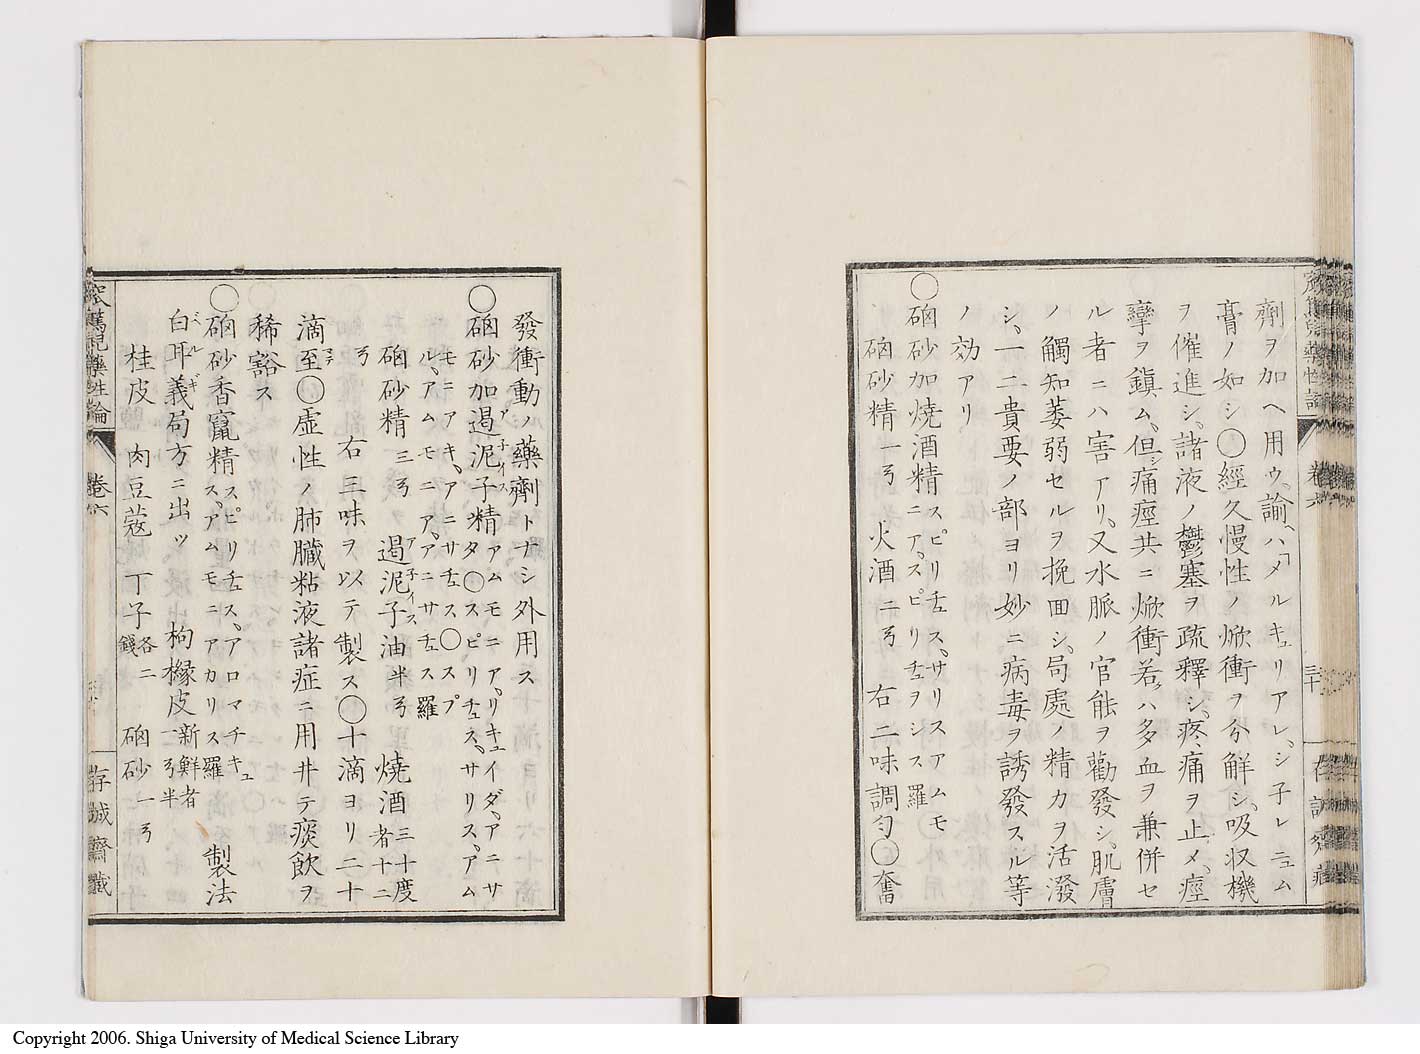 劑ヲ加ヘ用ウ、諭ヘハ「メルキュリアレ、シ子レニュム
膏ノ如シ〇經久慢性ノ焮衝ヲ分解シ、吸収機
ヲ催進シ、諸液ノ鬱塞ヲ疏釋シ、疼痛ヲ止メ、痙
攣ヲ鎮ム、但シ痛痙共ニ焮衝若クハ多血ヲ兼併セ
ル者ニハ害アリ、又水脈ノ官能ヲ勸發シ、肌膚
ノ觸知萎弱セルヲ挽回シ、局處ノ精力ヲ活潑
シ、一二貴要ノ部ヨリ妙ニ病毒ヲ誘發スル等
ノ効アリ
〇硇砂加焼酒精スピリチュス、サリスアムモニア、スピリチュヲシス羅
硇砂精一ㄢ 火酒二ㄢ 右二味調匀〇奮
三十
發衝動ノ藥劑トナシ外用ス
〇硇砂加遏泥子精アムモニア、リキュイダ、アニサタ〇スピリチュス、サリス、アム
モニアキ、アニサチュス〇スプル、アムモニア、アニサチュス羅
硇砂精三ㄢ 遏泥子油半ㄢ 焼酒三十度者十二
ㄢ 右三味ヲ以テ製ス〇十滴ヨリ二十
滴至〇虚性ノ肺臓粘液諸症ニ用井テ痰飲ヲ
稀豁ス
〇硇砂香竄精スピリチュス、アロマチキュス、アムモニアカリス羅 製法
白耳義局方ニ出ツ 枸櫞皮新鮮者一ㄢ半
桂皮 肉豆蔻 丁子各二錢 硇砂一ㄢ
窊篤児藥性論 卷六 存誠齋蔵